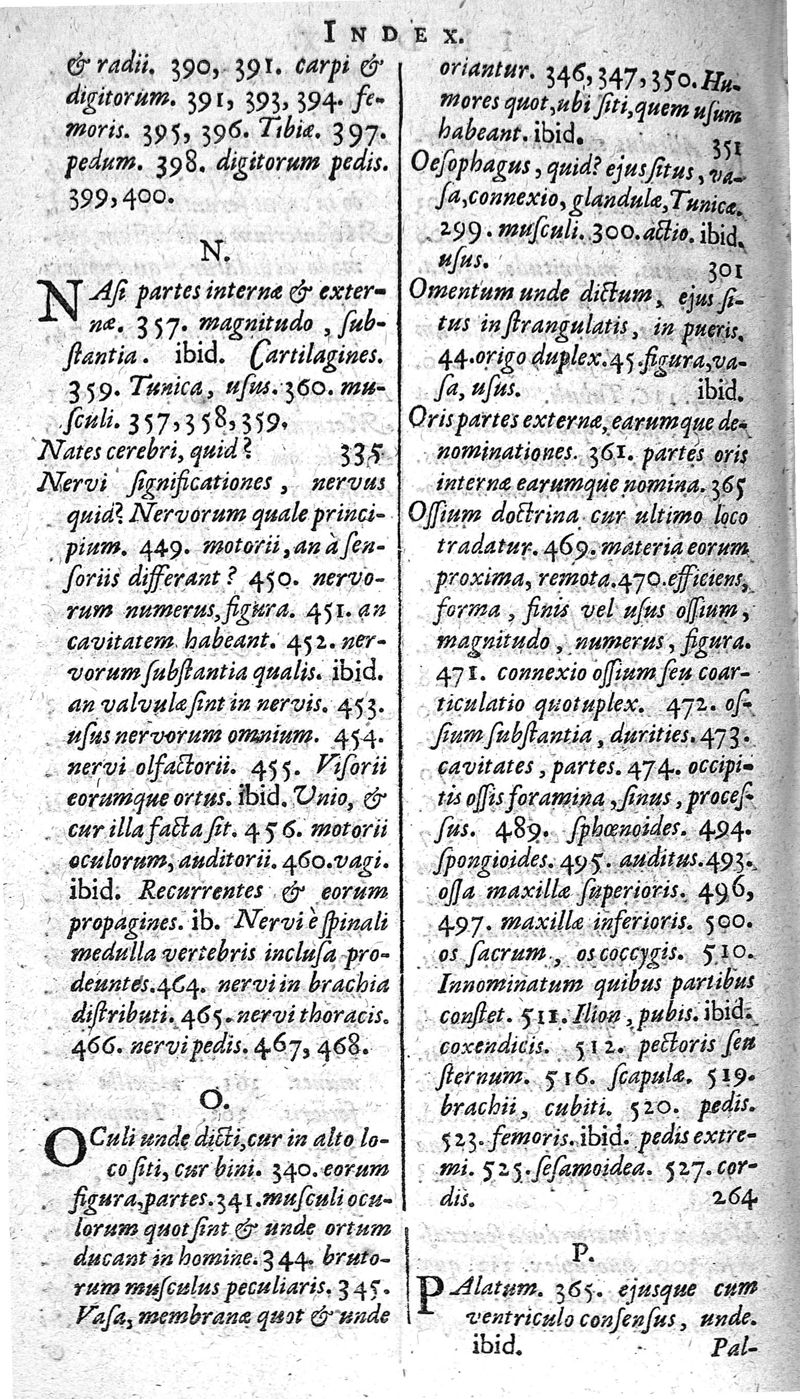 INDEX.
& radii. 390, 391. carpi &
digitorum. 391, 393, 394. fe-
moris. 395, 396. Tibiæ. 397.
pedum. 398. digitorum pedis.
399, 400.
N.
NAſi partes internæ & exter-
næ. 357. magnitudo, ſub-
ſtantia. ibid. Cartilagines.
359. Tunica, uſus. 360. mu-
ſculi. 357, 358, 359.
Nates cerebri, quid? 335
Nervi ſignificationes, nervus
quid? Nervorum quale princi-
pium. 449. motorii, an à ſen-
ſoriis differant? 450. nervo-
rum numerus, figura. 451. an
cavitatem habeant. 452. ner-
vorum ſubſtantia qualis. ibid.
an valvulæ ſint in nervis. 453.
uſus nervorum omnium. 454.
nervi olfactorii. 455. Viſorii
eorumque ortus. ibid. Unio, &
cur illa facta ſit. 456. motorii
oculorum, auditorii. 460. vagi.
ibid. Recurrentes & eorum
propagines. ib. Nervi è ſpinali
medulla vertebris incluſa pro-
deuntes. 464. nervi in brachia
diſtributi. 465. nervi thoracis.
466. nervi pedis. 467, 468.
O.
OCuli unde dicti, cur in alto lo-
co ſiti, cur bini. 340. eorum
figura, partes. 341. muſculi ocu-
lorum quot ſint & unde ortum
ducant in homine. 344. bruto-
rum muſculus peculiaris. 345.
Vaſa, membranæ quot & unde
oriantur. 346, 347, 350. Hu-
mores quot, ubi ſiti, quem uſum
habeant. ibid. 351
Oeſophagus, quid? ejus ſitus, va-
ſa, connexio, glandulæ, Tunicæ.
299. muſculi. 300. actio. ibid.
uſus. 301
Omentum unde dictum, ejus ſi-
tus in ſtrangulatis, in pueris.
44. origo duplex. 45. figura, va-
ſa, uſus. ibid.
Oris partes externæ, earumque de-
nominationes. 361. partes oris
internæ earumque nomina. 365
Oſſium doctrina cur ultimo loco
tradatur. 469. materia eorum
proxima, remota. 470. efficiens,
forma, finis vel uſus oſſium,
magnitudo, numerus, figura.
471. connexio oſſium ſeu coar-
ticulatio quotuplex. 472. oſ-
ſium ſubſtantia, durities. 473.
cavitates, partes. 474. occipi-
tis oſſis foramina, ſinus, proceſ-
ſus. 489. ſphœnoides. 494.
ſpongioides. 495. auditus. 493.
oſſa maxillæ ſuperioris. 496,
497. maxillæ inferioris. 500.
os ſacrum, os coccygis. 510.
Innominatum quibus partibus
conſtet. 511. Ilion, pubis. ibid.
coxendicis. 512. pectoris ſeu
ſternum. 516. ſcapulæ. 519.
brachii, cubiti. 520. pedis.
523. femoris. ibid. pedis extre-
mi. 525. ſeſamoidea. 527. cor-
dis. 264
P.
PAlatum. 365. ejusque cum
ventriculo conſenſus, unde.
ibid. Pal-